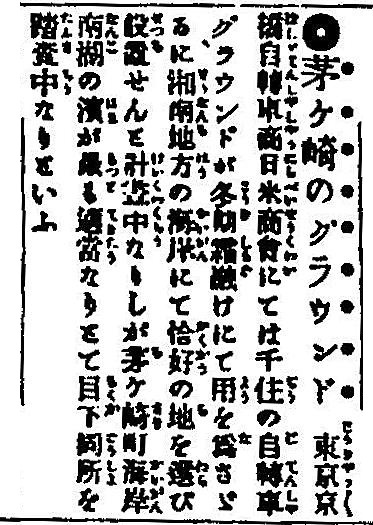 ◉茅ヶ崎のグラウンド 東京京
橋自轉車商日米商會にては千住の自轉車
グラウンドが冬期霜融けにて用を爲さゞ
るに湘南地方の海岸にて恰好の地を選び
設置せんと計畫中なりしが茅ヶ崎町海岸
南湖の濱が最も適當なりとて目下同所を
踏査中なりといふ